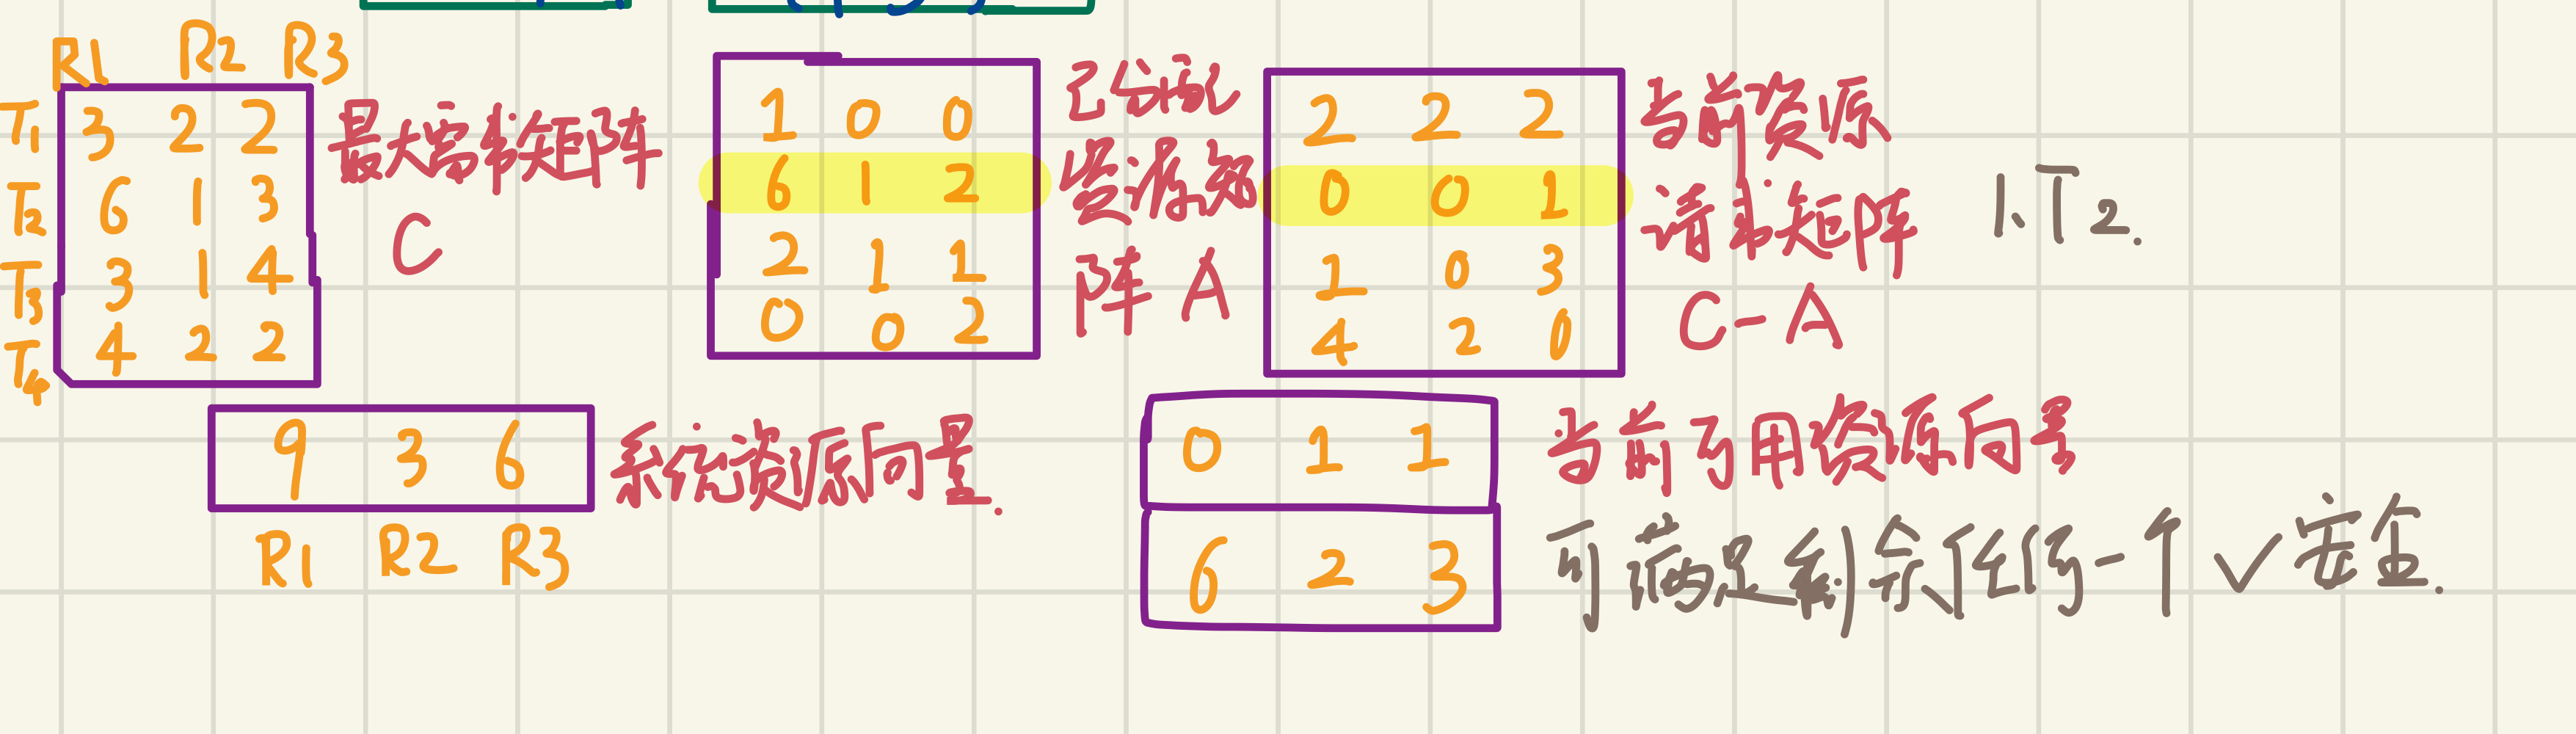 R1 R2 R3
T1 3 2 2
T2 6 1 3
T3 3 1 4
T4 4 2 2
最大需求矩阵
C
1 0 0
6 1 2
2 1 1
0 0 2
已分配
资源矩
阵 A
2 2 2
0 0 1
1 0 3
4 2 0
当前资源
请求矩阵
C-A
1.T2.
9 3 6
系统资源向量.
R1 R2 R3
0 1 1
当前可用资源向量
6 2 3
可满足剩余任何一个 ✓安全.